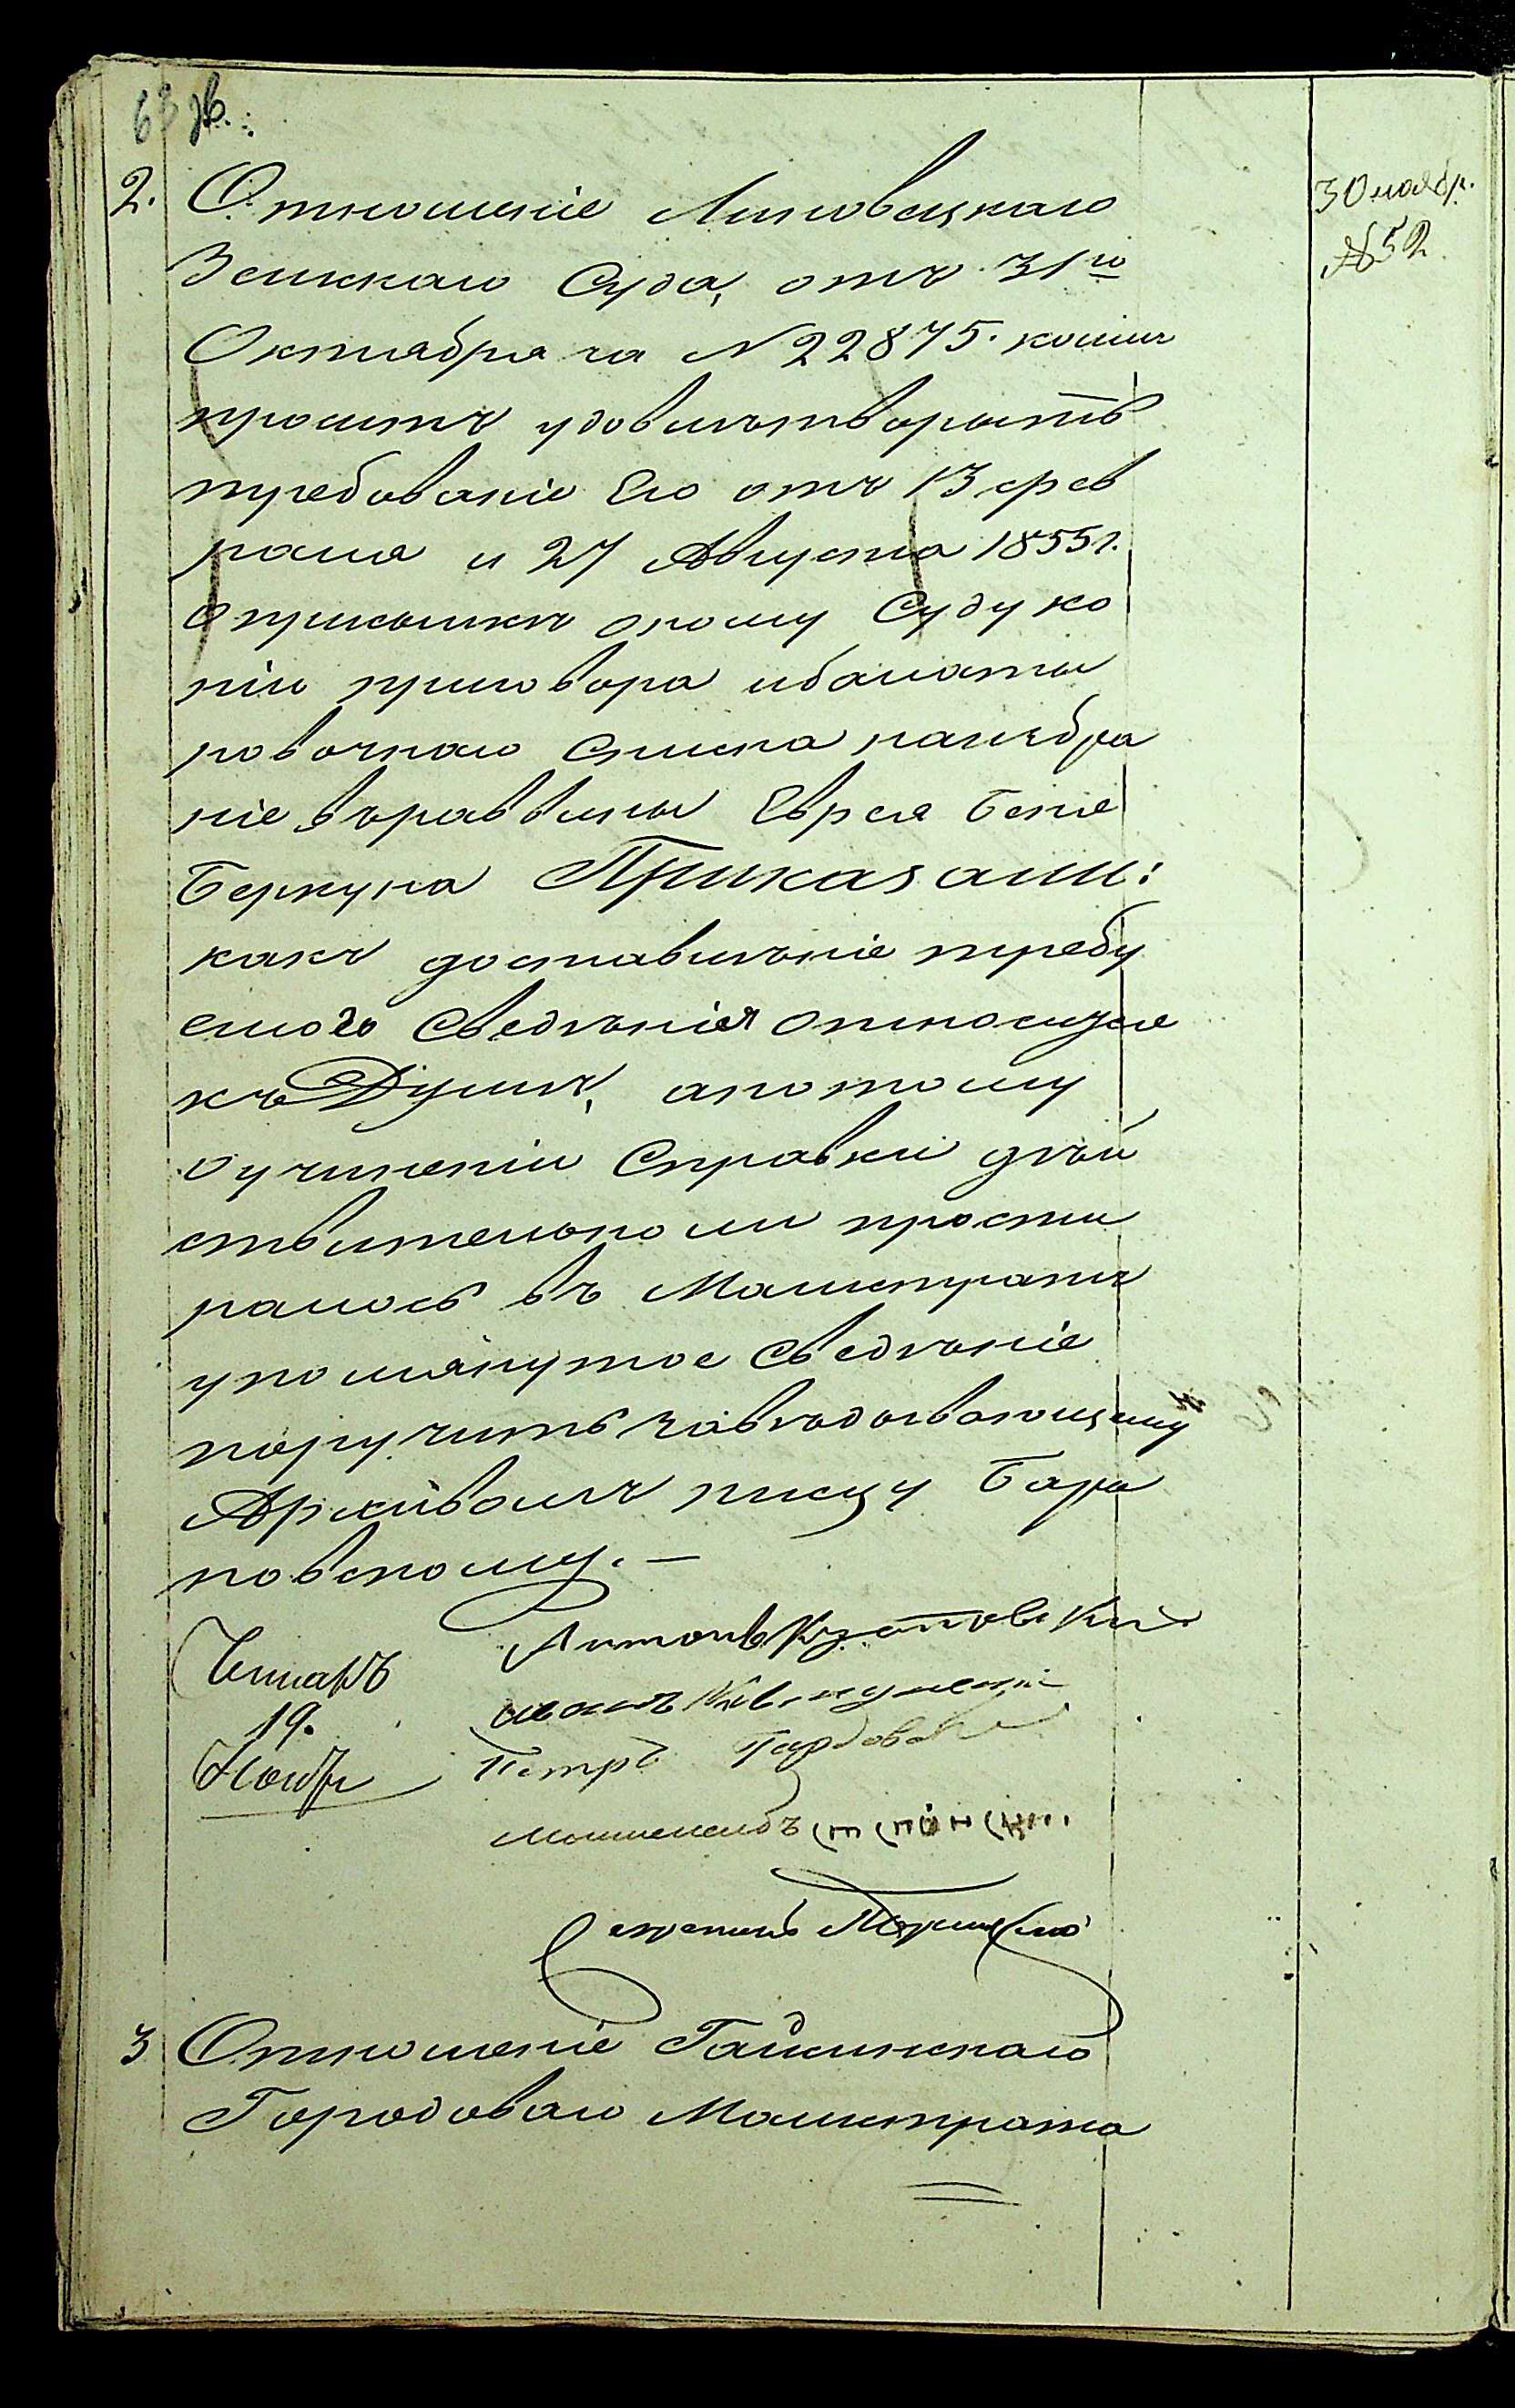 63 зв.
2. Отношеніе Липовецкаго
30 ноябр.
№ 52
Земскаго Суда, отъ 31го
Октября за N 22875. коимъ
проситъ удовлѣтворить
требованіе Его отъ 13 фев
раля и 27 Августа 1855 г.
о присылкѣ оному Суду ко
піи приговора и балати
ровочнаго списка на избра
ніе въ раввины Еврея Беніе
Беркуна Приказали:
какъ доставлѣніе требу
емого Сведѣнія относиця
къ Думѣ, а потому
о учиненіи Справки дѣй
ствительно ли прости
ралось въ Магистратъ
упомянутое Сведѣніе
поручить завѣдывающему
Архивомъ писцу Бара
новскому. —
Читалъ
19.
Ноябр
Антонъ
Иванъ
Петръ
Секретарь
3 Отношеніе Гайсинскаго
Городоваго Магистрата